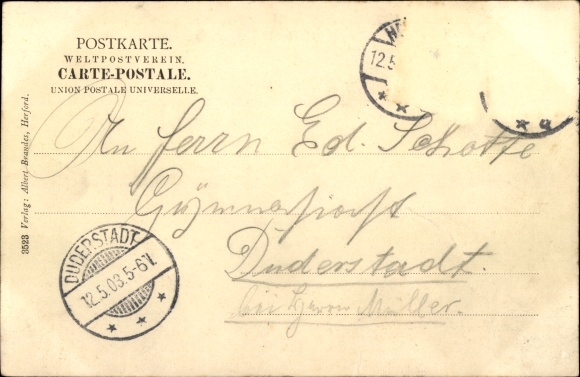 POSTKARTE.
WELTPOSTVEREIN.
CARTE-POSTALE.
UNION POSTALE UNIVERSELLE.
12.5
An Herrn Ed. Schotte
Gymnasiast
Duderstadt.
bei Herrn Müller.
DUDERSTADT
12.5.03.5-6V.
3523 Verlag: Albert Brandes, Herford.